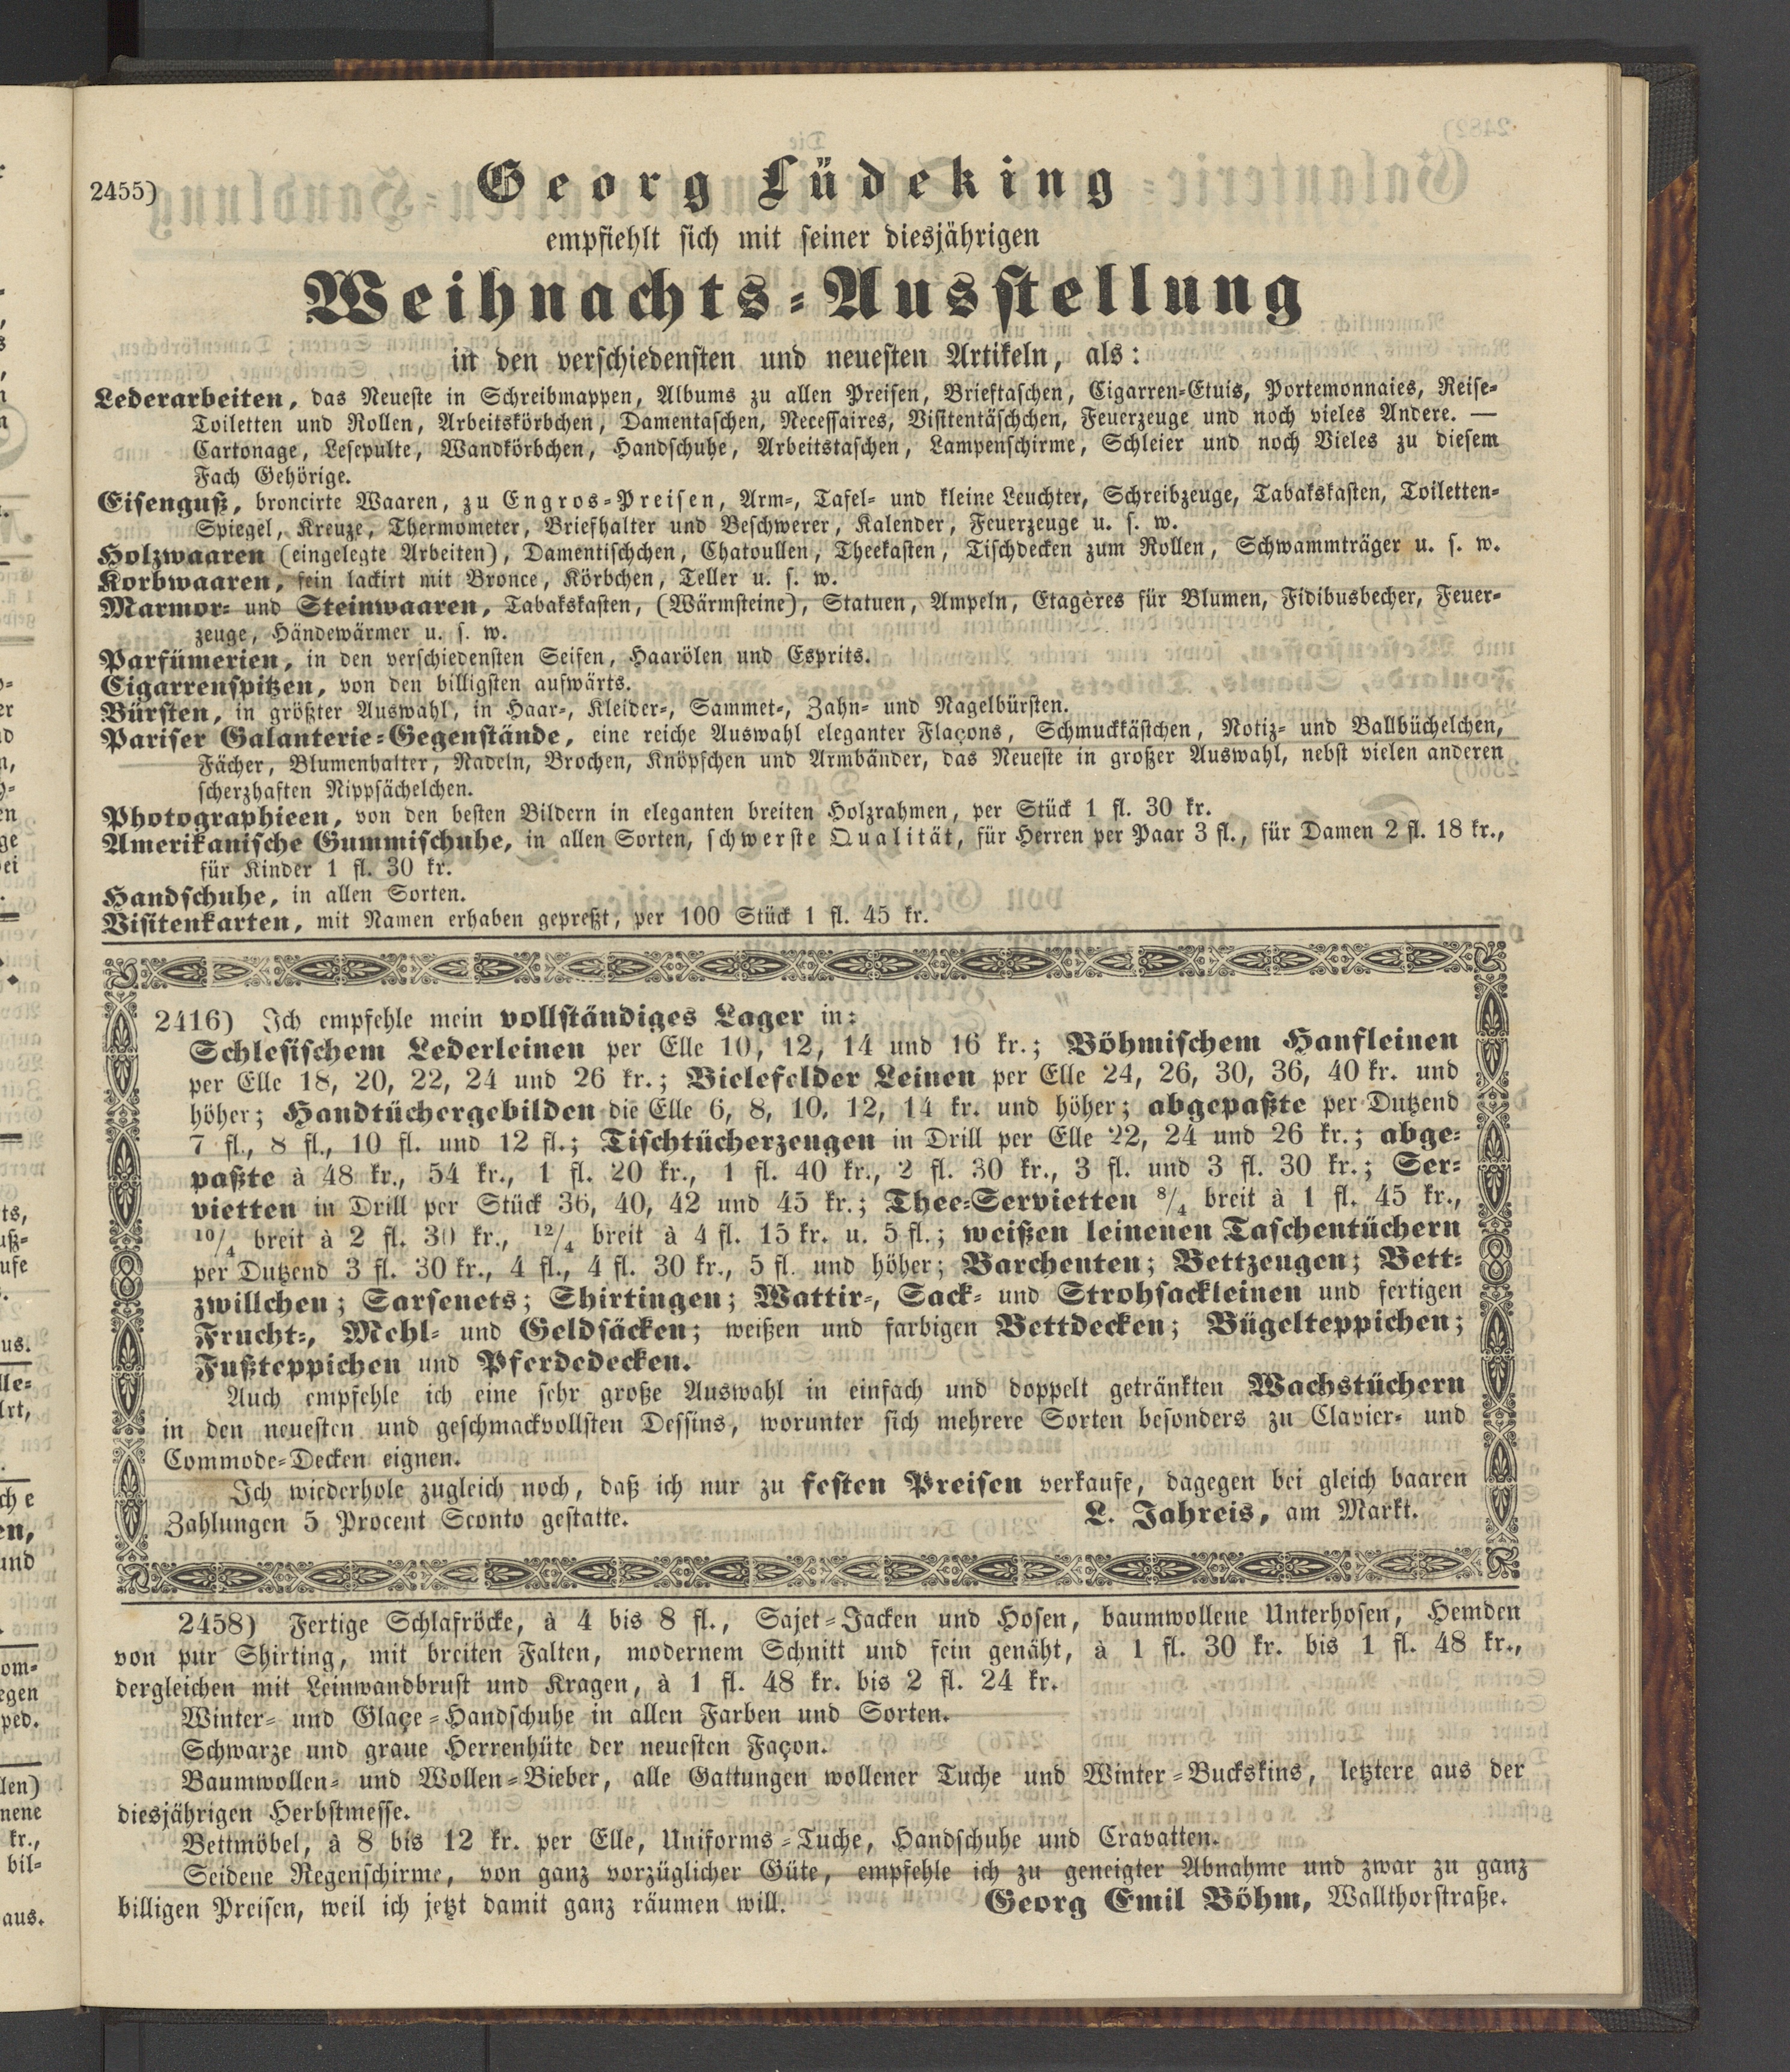 2455)
Georg Lüdeking
empfiehlt sich mit seiner diesjährigen
Weihnachts-Ausstellung
in den verschiedensten und neuesten Artikeln, als:
Lederarbeiten, das Neueste in Schreibmappen, Albums zu allen Preisen, Brieftaschen, Cigarren-Etuis, Portemonnaies, Reise-
Toiletten und Rollen, Arbeitskörbchen, Damentaschen, Necessaires, Visitentäschchen, Feuerzeuge und noch vieles Andere. —
Cartonage, Lesepulte, Wandkörbchen, Handschuhe, Arbeitstaschen, Lampenschirme, Schleier und noch Vieles zu diesem
Fach Gehörige.
Eisenguß, broncirte Waaren, zu Engros-Preisen, Arm-, Tafel- und kleine Leuchter, Schreibzeuge, Tabakskasten, Toiletten-
Spiegel, Kreuze, Thermometer, Briefhalter und Beschwerer, Kalender, Feuerzeuge u. s. w.
Holzwaaren (eingelegte Arbeiten), Damentischchen, Chatoullen, Theekasten, Tischdecken zum Rollen, Schwammträger u. s. w.
Korbwaaren, fein lackirt mit Bronce, Körbchen, Teller u. s. w.
Marmor- und Steinwaaren, Tabakskasten, (Wärmsteine), Statuen, Ampeln, Etagères für Blumen, Fidibusbecher, Feuer-
zeuge, Händewärmer u. s. w.
Parfümerien, in den verschiedensten Seifen, Haarölen und Esprits.
Cigarrenspitzen, von den billigsten aufwärts.
Bürsten, in größter Auswahl, in Haar-, Kleider-, Sammet-, Zahn- und Nagelbürsten.
Pariser Galanterie-Gegenstände, eine reiche Auswahl eleganter Flaçons, Schmuckkästchen, Notiz- und Ballbüchelchen,
Fächer, Blumenhalter, Nadeln, Brochen, Knöpfchen und Armbänder, das Neueste in großer Auswahl, nebst vielen anderen
scherzhaften Nippsächelchen.
Photographieen, von den besten Bildern in eleganten breiten Holzrahmen, per Stück 1 fl. 30 kr.
Amerikanische Gummischuhe, in allen Sorten, schwerste Qualität, für Herren per Paar 3 fl., für Damen 2 fl. 18 kr.,
für Kinder 1 fl. 30 kr.
Handschuhe, in allen Sorten.
Visitenkarten, mit Namen erhaben gepreßt, per 100 Stück 1 fl. 45 kr.
2416) Ich empfehle mein vollständiges Lager in:
Schlesischem Lederleinen per Elle 10, 12, 14 und 16 kr.; Böhmischem Hanfleinen
per Elle 18, 20, 22, 24 und 26 kr.; Bielefelder Leinen per Elle 24, 26, 30, 36, 40 kr. und
höher; Handtüchergebilden die Elle 6, 8, 10, 12, 14 kr. und höher; abgepaßte per Dutzend
7 fl., 8 fl., 10 fl. und 12 fl.; Tischtücherzeugen in Drill per Elle 22, 24 und 26 kr.; abge-
paßte à 48 kr., 54 kr., 1 fl. 20 kr., 1 fl. 40 kr., 2 fl. 30 kr., 3 fl. und 3 fl. 30 kr.; Ser-
vietten in Drill per Stück 36, 40, 42 und 45 kr.; Thee-Servietten 8/4 breit à 1 fl. 45 kr.,
10/4 breit à 2 fl. 30 kr., 12/4 breit à 4 fl. 15 kr. u. 5 fl.; weißen leinenen Taschentüchern
per Dutzend 3 fl. 30 kr., 4 fl., 4 fl. 30 kr., 5 fl. und höher; Barchenten; Bettzeugen; Bett-
zwillchen; Sarsenets; Shirtingen; Wattir-, Sack- und Strohsackleinen und fertigen
Frucht-, Mehl- und Geldsäcken; weißen und farbigen Bettdecken; Bügelteppichen;
Fußteppichen und Pferdedecken.
Auch empfehle ich eine sehr große Auswahl in einfach und doppelt getränkten Wachstüchern
in den neuesten und geschmackvollsten Dessins, worunter sich mehrere Sorten besonders zu Clavier- und
Commode-Decken eignen.
Ich wiederhole zugleich noch, daß ich nur zu festen Preisen verkaufe, dagegen bei gleich baaren
Zahlungen 5 Procent Sconto gestatte. L. Jahreis, am Markt.
2458) Fertige Schlafröcke, à 4 bis 8 fl., Sajet-Jacken und Hosen, baumwollene Unterhosen, Hemden
von pur Shirting, mit breiten Falten, modernem Schnitt und fein genäht, à 1 fl. 30 kr. bis 1 fl. 48 kr.,
dergleichen mit Leinwandbrust und Kragen, à 1 fl. 48 kr. bis 2 fl. 24 kr.
Winter- und Glaçe-Handschuhe in allen Farben und Sorten.
Schwarze und graue Herrenhüte der neuesten Façon.
Baumwollen- und Wollen-Bieber, alle Gattungen wollener Tuche und Winter-Buckskins, letztere aus der
diesjährigen Herbstmesse.
Bettmöbel, à 8 bis 12 kr. per Elle, Uniforms-Tuche, Handschuhe und Cravatten.
Seidene Regenschirme, von ganz vorzüglicher Güte, empfehle ich zu geneigter Abnahme und zwar zu ganz
billigen Preisen, weil ich jetzt damit ganz räumen will. Georg Emil Böhm, Wallthorstraße.